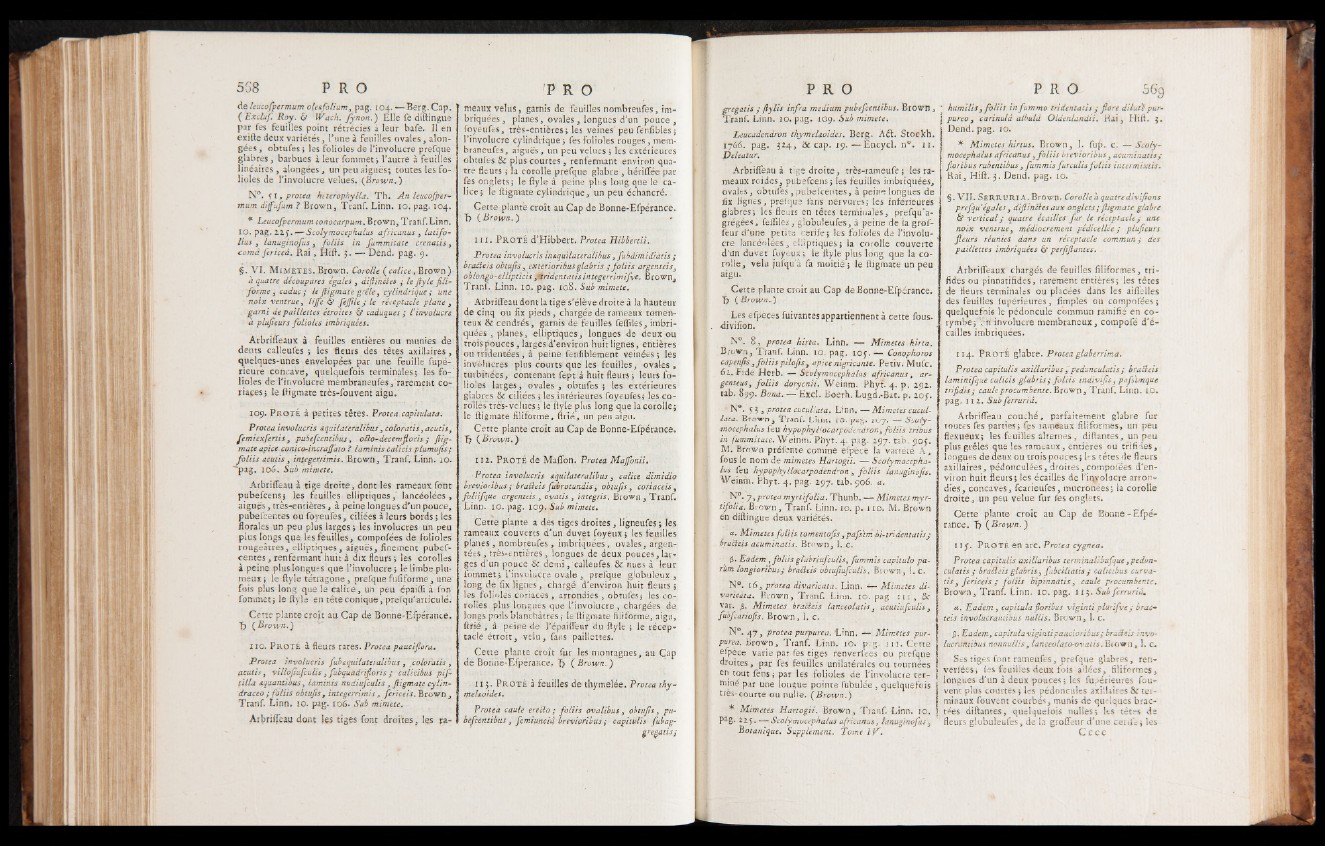 568 P R O
de leucospermum oleæfolium, pag. 104. — Berg. Cap.
( Excluf. Roy. & Wach. synon. ) Elle se distingue
par ses feuilles point rétrécies à leur base. Il en
existe deux variétés, l'une à feuilles ovales, alon-
gées, obtuses ; les folioles de l'involucre presque
glabres, barbues à leur sommet ; l'autre à feuilles
linéaires, alongées, un peu aiguës ; toutes les fo-
lioles de l'involucre velues. ( Brown. )
N°. 51, protea heterophylla. Th. An leucosper-
mum diffusum ? Brown, Trans. Linn. 10. pag. 104.
* Leucospermum conocarpum. Brown, Trans. Linn.
10. pag. 225. — Scolymocephalus africanus, latifo-
lius, lanuginosus, foliis in summitate crenatis,
comâ sericeâ. Rai, Hist. 3. — Dend. pag. 9.
§. VI. MIMETES. Brown. Corolle ( calice, Brown )
à quatre découpures égales, distinctes ; le style fili-
forme, caduc ; le stigmate grêle, cylindrique ; une
noix ventrue, lisse & sessile ; le réceptacle plane,
garni de paillettes étroites & caduques ; l'involucre
à plusieurs folioles imbriquées.
Arbrisseaux à feuilles entières ou munies de
dents calleuses ; les fleurs des têtes axillaires,
quelques-unes envelopées par une feuille supé-
rieure concave, quelquefois terminales ; les fo-
lioles de l'involucre membraneuses, rarement co-
riaces ; le stigmate très-souvent aigu.
109. PROTÉ à petites têtes. Protea capitulata.
Protea involucris æquilateralibus, coloratis, acutis,
semiexsertis, pubescentibus, octo-decemfloris ; stig-
mate apice conico-incrassato ? laminis calicis plumosis ;
foliis acutis, integerrimis. Brown, Trans. Linn. 10.
pag. 106. Sub mimete.
Arbrisseau à tige droite, dont les rameaux sont
pubescens ; les feuilles elliptiques, lancéolées,
aiguës, très-entières, à peine longues d'un pouce,
pubescentes ou soyeuses, ciliées à leurs bords ; les
florales un peu plus larges ; les involucres un peu
plus longs que les feuilles, composées de folioles
rougeâtres, elliptiques, aiguës, finement pubes-
centes, renfermant huit à dix fleurs ; les corolles
à peine plus longues que l'involucre ; le limbe plu-
meux ; le style tétragone, presque fusiforme, une
fois plus long que le calice, un peu épaissi à son
sommet ; le style en tête conique, presqu'articulé.
Cette plante croît au Cap de Bonne-Espérance.
♄ ( Brown. )
110. PROTÉ à fleurs rares. Protea pauciflora.
Protea involucris subæquilateralibus, coloratis,
acutis, villosiusculis, subquadrifloris ; calicibus pis-
tilla æquantibus, laminis nudiusculis, stigmate cylin-
draceo ; foliis obtusis, integerrimis, sericeis. Brown,
Trans. Linn. 10. pag. 106. Sub mimete.
Arbrisseau dont les tiges sont droites, les ra-
P R O
meaux velus, garnis de feuilles nombreuses, im-
briquées, planes, ovales, longues d'un pouce,
soyeuses, très-entières ; les veines peu sensibles ;
l'involucre cylindrique ; ses folioles rouges, mem-
braneuses, aiguës, un peu velues ; les extérieures
obtuses & plus courtes, renfermant environ qua-
tre fleurs ; la corolle presque glabre, hérissée par
ses onglets ; le style à peine plus long que le ca-
lice ; le stigmate cylindrique, un peu échancré.
Cette plante croît au Cap de Bonne-Espérance.
♄ ( Brown. )
111. PROTÉ d'Hibbert. Protea Hibbertii.
Protea involucris inæquilateralibus, subdimidiatis ;
bracteis obtusis, exterioribus glabris ; foliis argenteis,
oblongo-ellipticis, tridentatis integerrimisve. Brown,
Trans. Linn. 10. pag. 108. Sub mimete.
Arbrisseau dont la tige s'élève droite à la hauteur
de cinq ou six pieds, chargée de rameaux tomen-
teux & cendrés, garnis de feuilles sessiles, imbri-
quées, planes, elliptiques, longues de deux ou
trois pouces, larges d'environ huit lignes, entières
ou tridentées, à peine sensiblement veinées ; les
involucres plus courts que les feuilles, ovales,
turbinées, contenant sept à huit fleurs ; leurs fo-
lioles larges, ovales, obtuses ; les extérieures
glabres & ciliées ; les intérieures soyeuses ; les co-
rolles très-velues ; le style plus long que la corolle ;
le stigmate filiforme, strié, un peu aigu.
Cette plante croît au Cap de Bonne-Espérance.
♄ ( Brown. )
112. PROTÉ de Masson. Protea Massonii.
Protea involucris æquilateralibus, calice dimidio
brevioribus ; bracteis subrotundis, obtusis, coriaceis,
foliisque argenteis, ovatis, integris. Brown, Trans.
Linn. 10. pag. 109. Sub mimete.
Cette plante a des tiges droites, ligneuses ; les
rameaux couverts d'un duvet soyeux ; les feuilles
planes, nombreuses, imbriquées, ovales, argen-
tées, très-entières, longues de deux pouces, lar-
ges d'un pouce & demi, calleuses & nues à leur
sommet ; l'involucre ovale, presque globuleux,
long de six lignes, chargé d'environ huit fleurs ;
les folioles coriaces, arrondies, obtuses ; les co-
rolles plus longues que l'involucre, chargées de
longs poils blanchâtres ; le stigmate fusiforme, aigu,
strié, à peine de l'épaisseur du style ; le récep-
tacle étroit, velu, sans paillettes.
Cette plante croît sur les montagnes, au Cap
de Bonne-Espérance. ♄ ( Brown. )
113. PROTÉ à feuilles de thymelée. Protea thy-
melæoides.
Protea caule erecto ; foliis ovalibus, obtusis, pu-
bescentibus, semiunciâ brevioribus ; capitulis subag-
gregatis ;
P R O
gregatis ; stylis infra medium pubescentibus. Brown,
Trans. Linn. 10. pag. 109. Sub mimete.
Leucadendron thymelæoides. Berg. Act. Stockh.
1766. pag. 324, & cap. 19. — Encycl. n°. 11.
Deleatur.
Arbrisseau à tige droite, très-rameuse ; les ra-
meaux roides, pubescens ; les feuilles imbriquées,
ovales, obtuses, pubescentes, à peine longues de
six lignes, presque sans nervures ; les inférieures
glabres ; les fleurs en têtes terminales, presqu'a-
grégées, sessiles, globuleuses, à peine de la gros-
seur d'une petite cerise ; les folioles de l'involu-
cre lancéolées, elliptiques ; la corolle couverte
d'un duvet soyeux ; le style plus long que la co-
rolle, velu jusqu'à sa moitié ; le stigmate un peu
aigu.
Cette plante croît au Cap de Bonne-Espérance.
♄ ( Brown. )
Les espèces suivantes appartiennent à cette sous-
division.
N°. 8, protea hirta. Linn. — Mimetes hirta.
Brown, Trans. Linn. 10. pag. 105. — Conophoros
capensis, foliis pilosis, apice nigricante. Petiv. Mus.
62. Fide Herb. — Scolymocephalus africanus, ar-
genteus, foliis dorycnii. Weinm. Phyt. 4. p. 292.
tab. 899. Bona. — Excl. Boerh. Lugd.-Bat. p. 205.
N°. 53, protea cucullata. Linn. — Mimetes cucul-
lata. Brown, Trans. Linn. 10. pag. 107. — Scoly-
mocephalus seu hypophyllocarpodendron, foliis tribus
in summitate. Weinm. Phyt. 4. pag. 297. tab. 905.
M. Brown présente comme espèce la variété A,
sous le nom de mimetes Hartogii. — Scolymocepha-
lus seu hypophyllocarpodendron, foliis lanuginosis.
Weinm. Phyt. 4. pag. 297. tab. 906. a.
N°. 7, protea myrtifolia. Thunb. — Mimetes myr-
tifolia. Brown, Trans. Linn. 10. p. 110. M. Brown
en distingue deux variétés.
α. Mimetes foliis tomentosis, passim bi-tridentatis ;
bracteis acuminatis. Brown, l. c.
β. Eadem, foliis glabriusculis, summis capitulo pa-
rùm longioribus ; bracteis obtusiusculis. Brown, l. c.
N°. 16, protea divaricata. Linn. — Mimetes di-
varicata. Brown, Trans. Linn. 10. pag. 111, &
var. β. Mimetes bracteis lanceolatis, acutiusculis,
subscariosis. Brown, l. c.
N°. 47, protea purpurea. Linn. — Mimetes pur-
purea. Brown, Trans. Linn. 10. pag. 111. Cette
espèce varie par ses tiges renversées ou presque
droites, par ses feuilles unilatérales ou tournées
en tout sens ; par les folioles de l'involucre ter-
miné par une longue pointe subulée, quelquefois
très-courte ou nulle. ( Brown. )
* Mimetes Hartogii. Brown, Trans. Linn. 10.
pag. 225. — Scolymocephalus africanus, lanuginosus,
Botanique. Supplément. Tome IV.
P R O 569
humilis, foliis in summo tridentatis ; flore dilutè pur-
pureo, carinulâ albulâ Oldenlandii. Rai, Hist. 3.
Dend. pag. 10.
* Mimetes hirtus. Brown, l. sup. c. — Scoly-
mocephalus africanus, foliis brevioribus, acuminatis ;
floribus rubentibus, summis surculis foliis intermixtis.
Rai, Hist. 3. Dend. pag. 10.
§. VII. SERRURIA. Brown. Corolle à quatre divisions
presqu'égales, distinctes aux onglets ; stigmate glabre
& vertical ; quatre écailles sur le réceptacle ; une
noix ventrue, médiocrement pédicellée ; plusieurs
fleurs réunies dans un réceptacle commun ; des
paillettes imbriquées & persistantes.
Arbrisseaux chargés de feuilles filiformes, tri-
fides ou pinnatifides, rarement entières ; les têtes
de fleurs terminales ou placées dans les aisselles
des feuilles supérieures, simples ou composées ;
quelquefois le pédoncule commun ramifié en co-
rymbe ; un involucre membraneux, composé d'é-
cailles imbriquées.
114. PROTÉ glabre. Protea glaberrima.
Protea capitulis axillaribus, pedunculatis ; bracteis
laminisque calicis glabris ; foliis indivisis, passimque
trifidis ; caule procumbente. Brown, Trans. Linn. 10.
pag. 112. Sub serruriâ.
Arbrisseau couché, parfaitement glabre sur
toutes ses parties ; ses rameaux filiformes, un peu
flexueux ; les feuilles alternes, distantes, un peu
plus grêles que les rameaux, entières ou trifides,
longues de deux ou trois pouces ; les têtes de fleurs
axillaires, pédonculées, droites, composées d'en-
viron huit fleurs ; les écailles de l'involucre arron-
dies, concaves, scarieuses, mucronées ; la corolle
droite, un peu velue sur ses onglets.
Cette plante croît au Cap de Bonne-Espé-
rance. ♄ ( Brown. )
115. PROTÉ en arc. Protea cygnea.
Protea capitulis axillaribus terminalibusque, pedun-
culatis ; bracteis glabris, subciliatis ; calicibus curva-
tis, sericeis ; foliis bipinnatis, caule procumbente.
Brown, Trans. Linn. 10. pag. 113. Sub serruriâ.
α. Eadem, capitula floribus viginti plurisve ; brac-
teis involucrantibus nullis. Brown, l. c.
β. Eadem, capitula viginti paucioribus ; bracteis invo-
lucrantibus nonnullis, lanceolato-ovatis. Brown, l. c.
Ses tiges sont rameuses, presque glabres, ren-
versées ; les feuilles deux fois ailées, filiformes,
longues d'un à deux pouces ; les supérieures sou-
vent plus courtes ; les pédoncules axillaires & ter-
minaux souvent courbés, munis de quelques brac-
tées distantes, quelquefois nulles ; les têtes de
fleurs globuleuses, de la grosseur d'une cerise ; les
C c c c